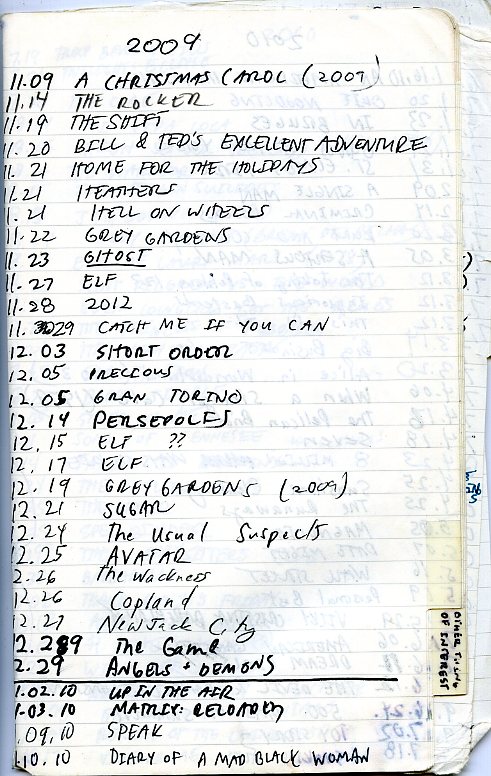 2009
11.09 A CHRISTMAS CAROL (2009)
11.14 THE ROCKER
11.19 THE SHIFT
11.20 BILL & TED'S EXCELLENT ADVENTURE
11.21 HOME FOR THE HOLIDAYS
11.21 HEATHERS
11.21 HELL ON WHEELS
11.22 GREY GARDENS
11.23 GHOST
11.27 ELF
11.28 2012
11.29 CATCH ME IF YOU CAN
12.03 SHORT ORDER
12.05 PRECIOUS
12.05 GRAN TORINO
12.14 PERSEPOLIS
12.15 ELF ??
12.17 ELF
12.19 GREY GARDENS (2009)
12.21 SUGAR
12.24 The Usual Suspects
12.25 AVATAR
2.26 The Wackness
12.26 Copland
12.27 New Jack City
2.29 The Game
2.29 ANGELS + DEMONS
1.02.10 UP IN THE AIR
1.03.10 MATRIX: RELOADED
1.09.10 SPEAK
1.10.10 DIARY OF A MAD BLACK WOMAN
OTHER THINGS
OF INTEREST